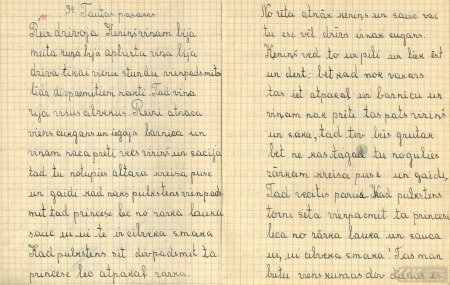 34. Tautas pasaka
191
Reiz dzīvoja Ķeniņš viņam bija
meita kura bija apburta viņa bija
dzīva tikai vienu stundu vienpadsmit
līdz divpacmitiem naktī. Tad viņa
rija visus cilvēkus. Reizi atnāca
viens kungans un iegāja baznīcā un
viņam nāca preti vecs vīriņš un sacīja
tad tu notupies altara kreisa puse
un gaidi kad naks pulkstens vienpads
mit tad princese lec no zārka lauka
sauc ui, ui te ir cilvēka smaka
Kad pulkstens sit divpadsmit ta
princese lec atpakaļ zarka.
No rīta atnāk ķeniņš un sauc vai
tu esi vēl dzīvs iznāk cugans.
Ķeniņš ved to un pili un liek ēst
un dzert. bet kad nāk vakars
tas iet atpakaļ un baznīcu un
viņam nāk preti tas pats vīriņš
un saka, tad tev būs grūtak
bet ne kas tagad tu nogulies
zārkam kreisa puse un gaidi,
Tad vecītis pazuda. Kad pulkstens
torni sita vienpacmit ta princese
leca no zārka lauka un sauca
ui, ui cilvēka smaka! Tas man
būtu viens kumas dzv